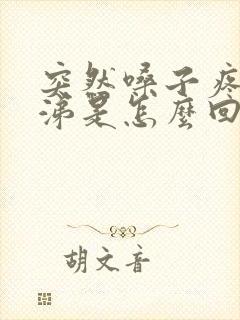 突然嗓子疼
涕是怎麼回
胡文音